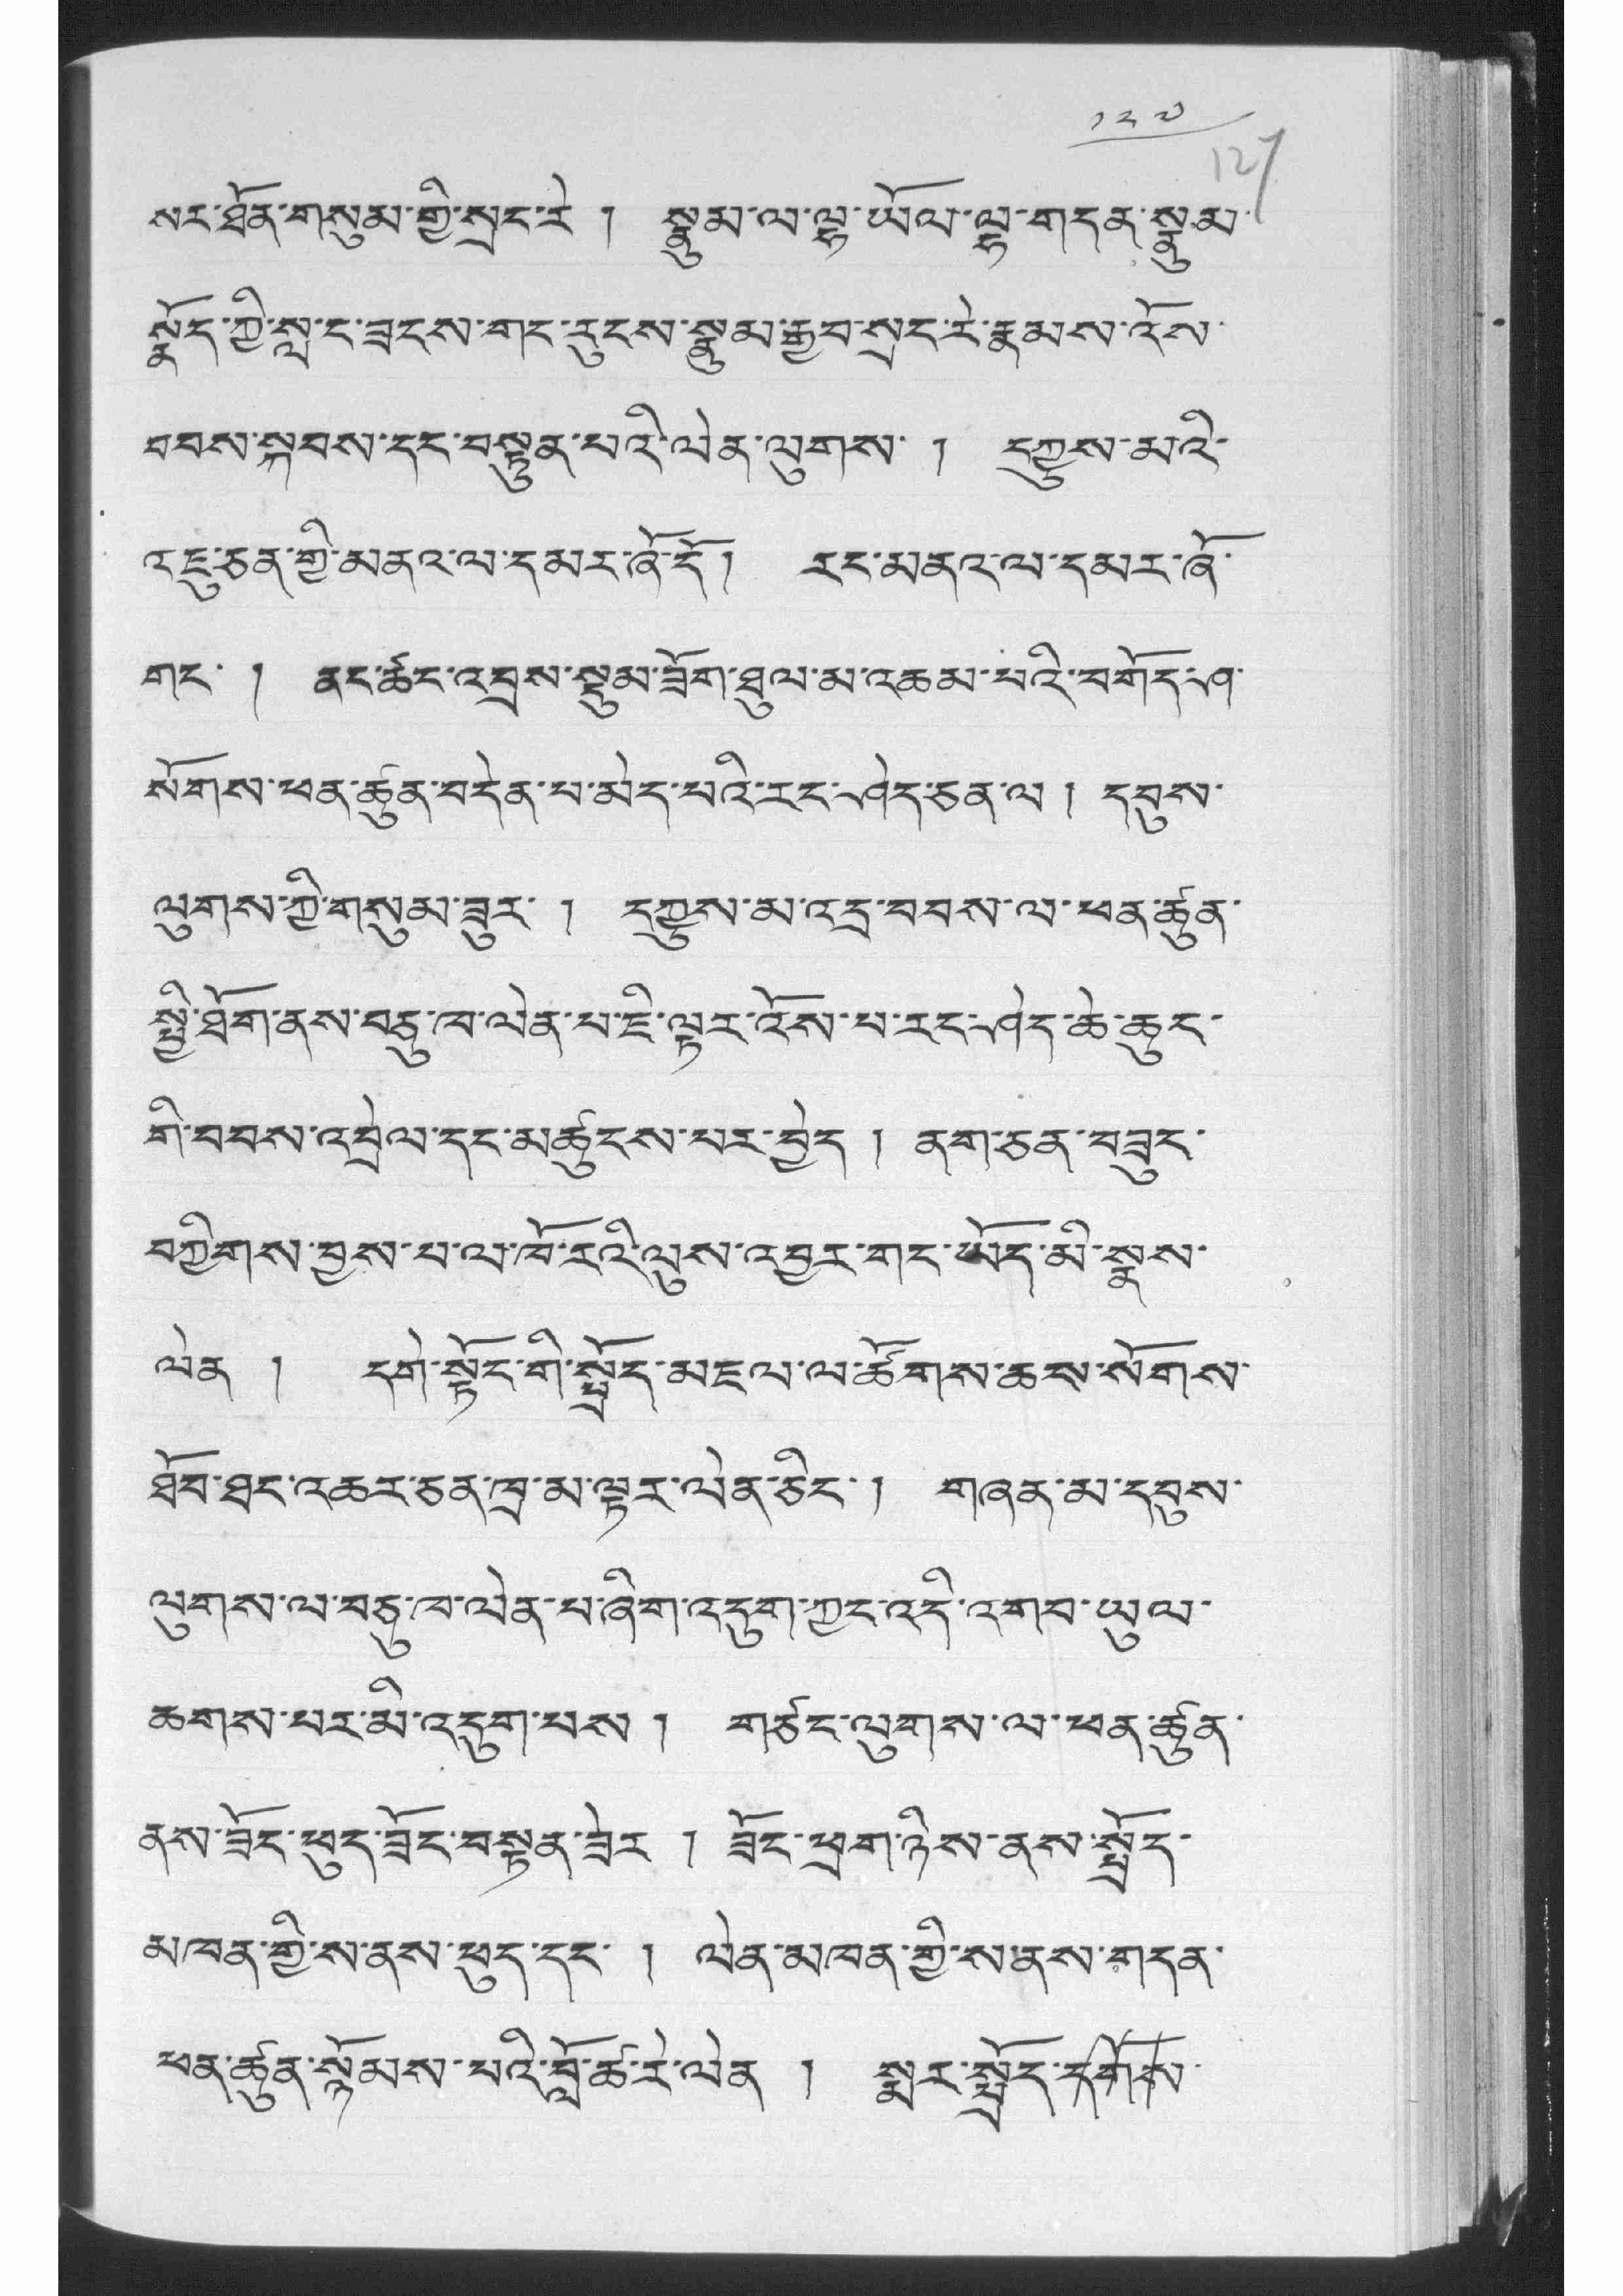 ༡༢༧
127
སར་ཐོན་གསུམ་གྱི་སྲང་རེ །  སྣུམ་ལ་ལྷ་ཡོལ་ལྷ་གདན་སྣུམ་
སྣོད་ཀྱི་སླ་ང་ཟངས་གང་རུངས་སྣུམ་རྒྱབ་སྲང་རེ་རྣམས་འོས་
བབས་སྐབས་དང་བསྟུན་པའི་ལེན་ལུགས །  དཀྱུས་མའི་
འཇུ་ཅན་གྱི་མནའ་ལ་དམར་ཞོ་དོ །  རང་མནའ་ལ་དམར་ཞོ་
གང །  ནང་ཚང་འབྲས་སྡུམ་ཟློག་ཐུལ་མ་འཆམ་པའི་བགོད་ཤ་
སོགས་ཕན་ཚུན་བདེན་པ་མེད་པའི་རང་ཤེད་ཅན་ལ །  དབུས་
ལུགས་ཀྱི་གསུམ་ཟུར །  དཀྱུས་མ་འདྲ་བབས་ལ་ཕན་ཚུན་
སྤྱི་ཐོག་ནས་བཅུ་ཁ་ལེན་པ་ཇི་ལྟར་འོས་པ་རང་ཤེད་ཆེ་ཆུང་
གི་བབས་འབྲེལ་དང་མཚུངས་པར་བྱེད །  ནག་ཅན་བཟུང་
བཀྱིགས་བྱས་པ་ལ་ཁོ་རའི་ལུས་འབྱར་གང་ཡོད་མི་སྣས་
ལེན །  དགེ་སྟོང་གི་སྤྲོད་མཇལ་ལ་ཚོགས་ཆས་སོགས་
ཐོབ་ཐང་འཆར་ཅན་ཁྲ་མ་ལྟར་ལེན་ཅིང །  གཞན་མ་དབུས་
ལུགས་ལ་བཅུ་ཁ་ལེན་པ་ཞིག་འདུག་ཀྱང་འདི་འགབ་ཡུལ་
ཆགས་པར་མི་འདུག་པས །  གཙང་ལུགས་ལ་ཕན་ཚུན་
ནས་ཟོང་ཕུད་ཟོང་བསྟན་ཟེར །  ཟོང་ཕྲག་ཉིས་ནས་སྤྲོད་
མཁན་གྱི་ས་ནས་ཕུད་དང །  ལེན་མཁན་གྱི་ས་ནས་གདན་
ཕན་ཚུན་སྙོམས་པའི་བློ་ཚ་རེ་ལེན །  སྨར་སྤྲོད་